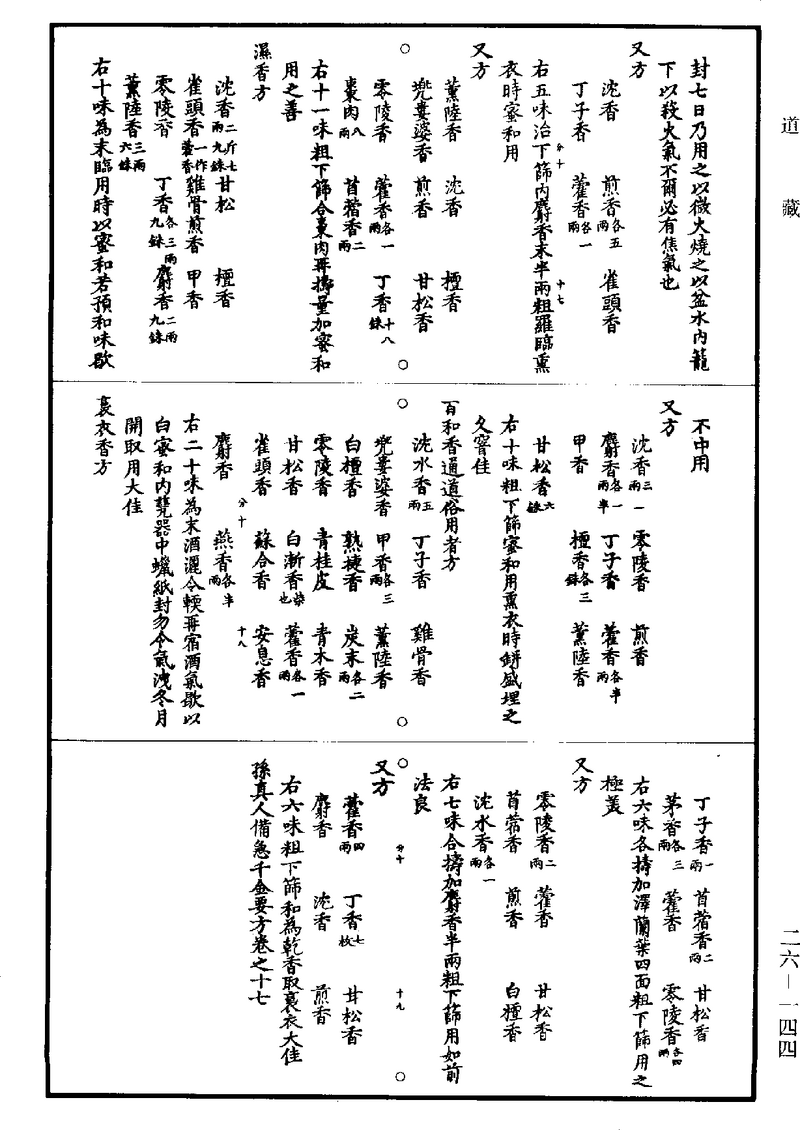 道藏
封七日乃用之以微火燒之以盆水內籠
下以殺火氣不爾必有焦氣也
又方
沈香 煎香各五兩 雀頭香
丁子香 藿香各一兩
右五味治下篩內麝香末半兩粗羅臨熏
衣時蜜和用
又方
薰陸香 沈香 檀香
兜婁婆香 煎香 甘松香
零陵香 藿香各一兩 丁香十八銖
棗肉八兩 苜蓿香二兩
右十一味粗下篩合棗肉再擣量加蜜和
用之善
濕香方
沈香二斤七兩九銖 甘松 檀香
雀頭香一作藿香 雞骨煎香 甲香
零陵香 丁香各三兩九銖 麝香二兩九銖
薰陸香三兩六銖
右十味為末臨用時以蜜和若預和味歇
分十
十七
不中用
又方
沈香三兩 零陵香 煎香
麝香各一兩半 丁子香 藿香各半兩
甲香 檀香各三銖 薰陸香
甘松香六銖
右十味粗下篩蜜和用熏衣時缾盛埋之
久窨佳
百和香通道俗用者方
沈水香五兩 丁子香 雞骨香
兜婁婆香 甲香各三兩 薰陸香
白檀香 熟捷香 炭末各二兩
零陵香 青桂皮 青木香
甘松香 白漸香柴也 藿香各一兩
雀頭香 蘇合香 安息香
麝香 燕香各半兩
右二十味為末酒灑令輭再宿酒氣歇以
白蜜和內甕器中蠟紙封勿令氣洩冬月
開取用大佳
裛衣香方
分十
十八
丁子香一兩 苜蓿香二兩 甘松香
茅香各三兩 藿香 零陵香各四兩
右六味各擣加澤蘭葉四面粗下篩用之
極美
又方
零陵香二兩 藿香 甘松香
苜蓿香 煎香 白檀香
沈水香各一兩
右七味合擣加麝香半兩粗下篩用如前
法良
又方
藿香四兩 丁香七枚 甘松香
麝香 沈香 煎香
右六味粗下篩和為乾香取裛衣大佳
孫真人備急千金要方卷之十七
分十
十九
二六—一四四